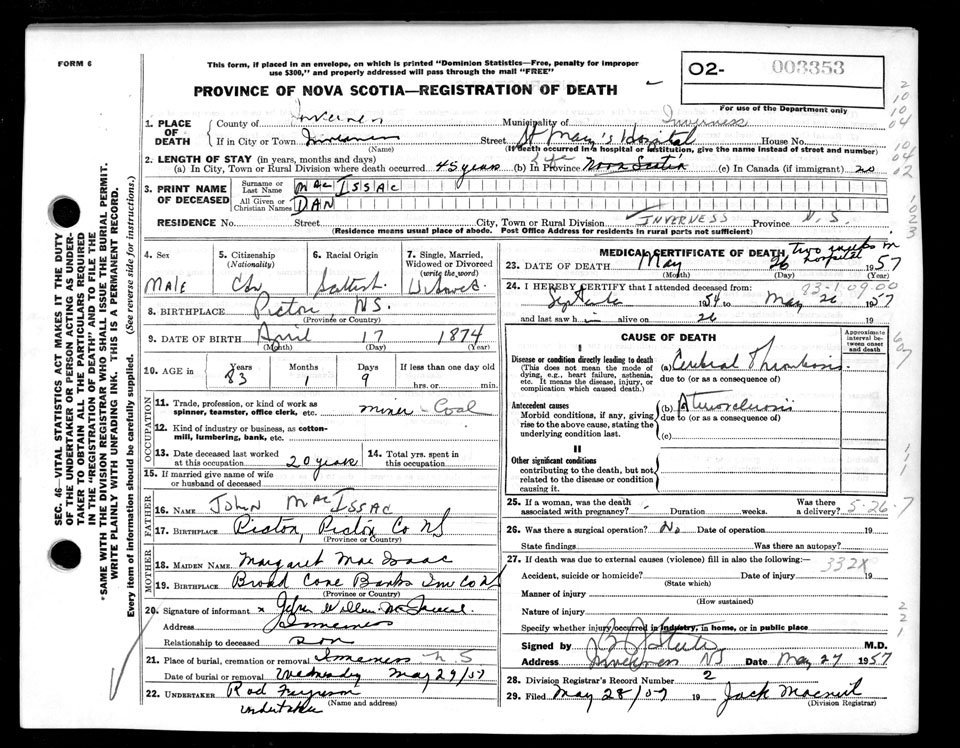 FORM 6
This form, if placed in an envelope, on which is printed "Dominion Statistics—Free, penalty for improper
use $300," and properly addressed will pass through the mail "FREE"
O2- 003353
For use of the Department only
PROVINCE OF NOVA SCOTIA—REGISTRATION OF DEATH
1. PLACE OF DEATH
County of Inverness Municipality of Inverness
If in City or Town Inverness Street St Mary's Hospital House No.
(Name) (If death occurred in a hospital or institution, give the name instead of street and number)
2. LENGTH OF STAY (in years, months and days)
(a) In City, Town or Rural Division where death occurred 45 years (b) In Province Nova Scotia (c) In Canada (if immigrant) no
3. PRINT NAME OF DECEASED
Surname or Last Name MacIssac
All Given or Christian Names DAN
RESIDENCE No. Street City, Town or Rural Division INVERNESS Province N.S.
(Residence means usual place of abode. Post Office Address for residents in rural parts not sufficient)
4. Sex
MALE
5. Citizenship
(Nationality)
Cdn
6. Racial Origin
Scottish
7. Single, Married, Widowed or Divorced
(write the word)
Widowed
8. BIRTHPLACE Pictou N.S.
(Province or Country)
9. DATE OF BIRTH April 17 1874
(Month) (Day) (Year)
10. AGE in Years Months Days If less than one day old
83 1 9 hrs. or min.
OCCUPATION
11. Trade, profession, or kind of work as
spinner, teamster, office clerk, etc. miner - Coal
12. Kind of industry or business, as cotton-
mill, lumbering, bank, etc.
13. Date deceased last worked
at this occupation 20 years
14. Total yrs. spent in
this occupation
15. If married give name of wife
or husband of deceased
FATHER
16. NAME JOHN MacISSAC
17. BIRTHPLACE Pictou, Pictou Co NS
(Province or Country)
MOTHER
18. MAIDEN NAME Margaret MacIsaac
19. BIRTHPLACE Broad Cove Banks Inv Co NS
(Province or Country)
20. Signature of informant x John
Address Inverness
Relationship to deceased son
21. Place of burial, cremation or removal Inverness N.S
Date of burial or removal Wednesday May 29/57
22. UNDERTAKER Rod Ferguson
(Name and address)
undertaker
MEDICAL CERTIFICATE OF DEATH two weeks in hospital
23. DATE OF DEATH May 26 1957
(Month) (Day) (Year)
24. I HEREBY CERTIFY that I attended deceased from:
83-1-09.00
September 1954 to May 26 1957
and last saw h im alive on 26 19
CAUSE OF DEATH
Approximate interval between onset and death
I
Disease or condition directly leading to death
(This does not mean the mode of
dying, e.g., heart failure, asthenia,
etc. It means the disease, injury, or
complication which caused death.)
(a) Cerebral Thrombosis
due to (or as a consequence of)
Antecedent causes
Morbid conditions, if any, giving
rise to the above cause, stating the
underlying condition last.
(b) Aterosclerosis
due to (or as a consequence of)
(c)
II
Other significant conditions
contributing to the death, but not
related to the disease or condition
causing it.
25. If a woman, was the death
associated with pregnancy? Duration weeks. Was there
a delivery? 5-26-7
26. Was there a surgical operation? No Date of operation 19
State findings Was there an autopsy?
27. If death was due to external causes (violence) fill in also the following:—
332X
Accident, suicide or homicide? Date of injury 19
(State which)
Manner of injury
(How sustained)
Nature of injury
Specify whether injury occurred in industry, in home, or in public place
Signed by M.D.
Address Inverness NS Date May 27 1957
28. Division Registrar's Record Number 2
29. Filed May 28/57 19 Jack
(Division Registrar)
SEC. 46—VITAL STATISTICS ACT MAKES IT THE DUTY
OF THE UNDERTAKER OR PERSON ACTING AS UNDER-
TAKER TO OBTAIN ALL THE PARTICULARS REQUIRED
IN THE "REGISTRATION OF DEATH" AND TO FILE THE
*SAME WITH THE DIVISION REGISTRAR WHO SHALL ISSUE THE BURIAL PERMIT.
WRITE PLAINLY WITH UNFADING INK. THIS IS A PERMANENT RECORD.
Every item of information should be carefully supplied. (See reverse side for instructions.)